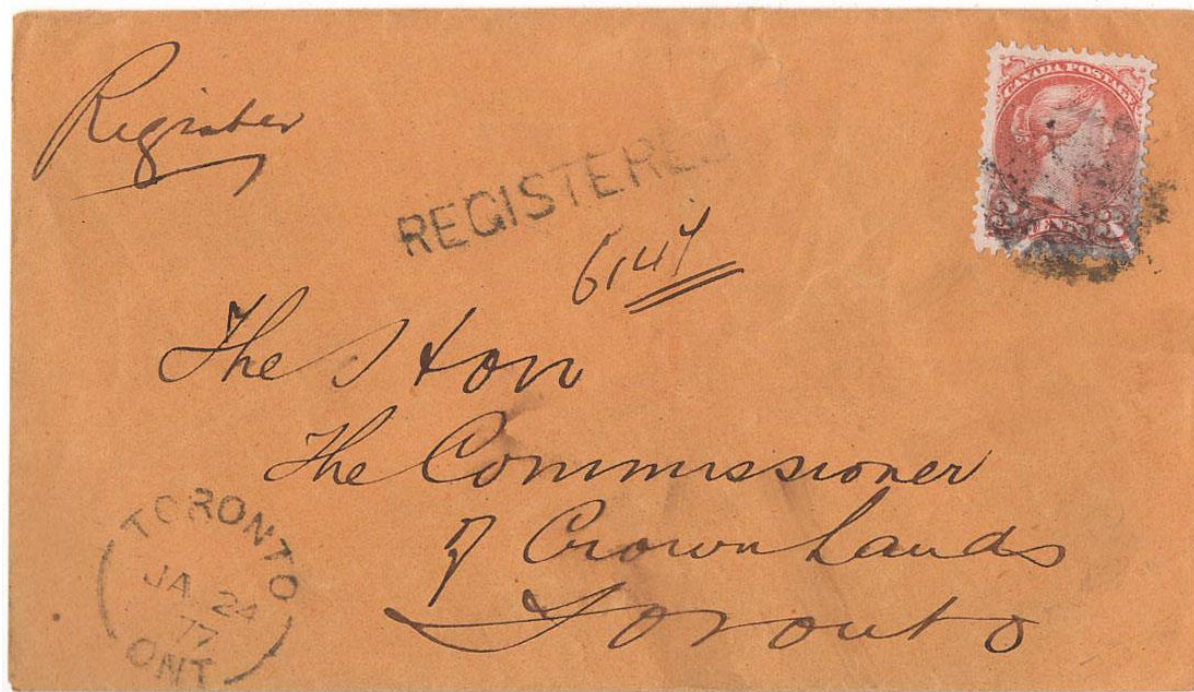 Register
CANADA POSTAGE
REGISTERED
3 CENTS 3
6144
The Hon
The Commissioner
of Crown Lands
Toronto
TORONTO
JA 24
77
ONT